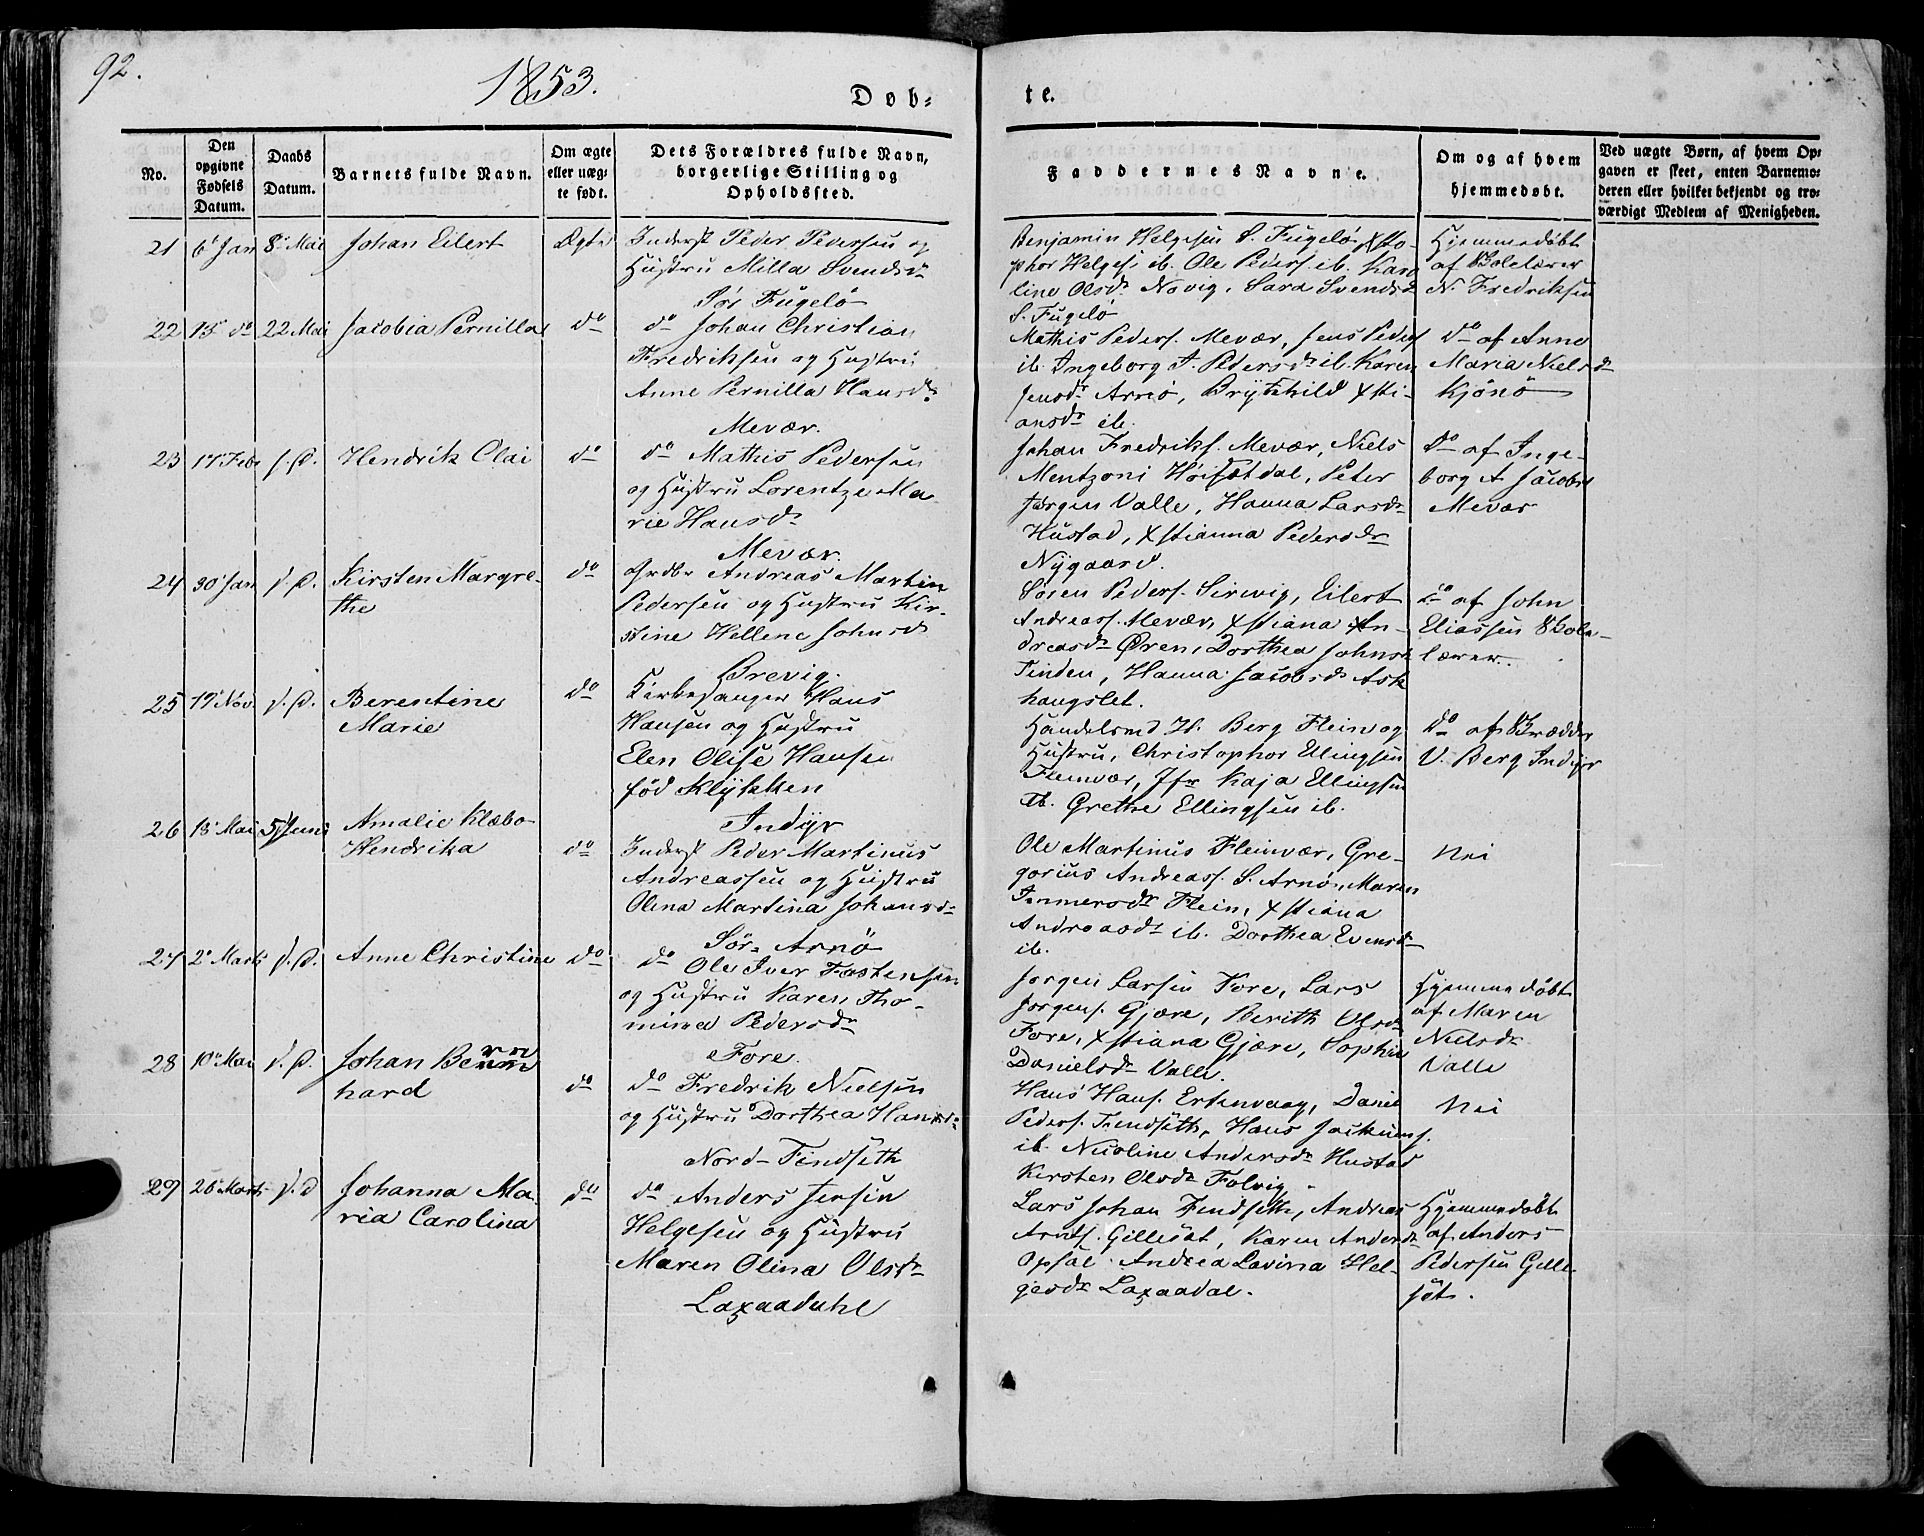 92.
1853.
Døb-
te.
No.
Den opgivne Fødsels Datum.
Daabs Datum.
Barnets fulde Navn.
Om ægte eller uæg-te født.
Dets Forældres fulde Navn, borgerlige Stilling og Opholdssted.
Faddernes Navne.
Om og af hvem hjemmedøbt.
Ved uægte Børn, af hvem Op-gaven er skeet, enten Barnemo-deren eller hvilket bekjendt og tro-værdigt Medlem af Menigheden.
21 6' Jan 8' Mai Johan Eilert Ægte
Inderst Peder Pedersen og
Hustru Milla Svendsdr
Sør Fugelö
Benjamin Helgesen S. Fugelö, Xsto-
phor Helges. ib. Ole Peders. ib. Karo
line Olsdr Novig, Sara Svendsd
S. Fugelö
Hjemmedøbt
af Skolelærer
N. Fredriksen
22 15' do 22 Mai Jacobia Pernilla do
do Johan Christian
Fredriksen og Hustru
Anne Pernilla Hansdr
Mevær.
Mathis Peders. Mevær, Jens Peders
ib. Ingeborg J. Pedersdr ib. Karen
Jensdr Arnö, Brÿthild Xsti-
ansdr ib.
do af Anne
Maria Nielsdr
Kjönö
23 17 Febr s. D. Hendrik Olai do
do Mathis Pedersen
og Hustru Lorentze Ma
rie Hansdr
Mevær.
Johan Fredriks. Mevær, Niels
Mentzoni Høisetdal, Peter
Jørgen Valle, Hanna Larsdr
Hustad, Xstianna Pedersdr
Nygaard.
do af Inge-
borg A Jacobsd
Mevær
24 30 Jan s. D. Kirsten Margre-
the
do
Grdbr Andreas Martin
Pedersen og Hustru Kir-
stine Hellene Johnsdr
Brevig.
Søren Peders. Sirvig, Eilert
Andreass. Mevær, Xstiana An-
dreasdr Øren, Dorthea Johnsd
Tinden, Hanna Jacobsdr Ask
haugslet.
do af John
Eliassen Skole-
lærer.
25 19 Nov. s. D. Berentine
Marie
do
Kirkesanger Hans
Hansen og Hustru
Elen Olise Hansen
fød Klÿkken
Indÿr
Handelsmd H. Berg Flein og
Hustru, Christophor Ellingsen
Fleinvær, Jfr Kaja Ellingsen
ib. Grethe Ellingsen ib.
do af Skrædder
V. Berg Indÿr
26 13' Mai 5' Juni Amalie Klæbo
Hendrika
do
Inderst Peder Martinus
Andreassen og Hustru
Olena Martina Johansdr
Sör-Arnö
Ole Martinus Fleinvær, Gre-
gorius Andreass. S. Arnö, Maren
Immersdr Flein, Xstiana
Andreasdr ib. Dorthea Evensdr
ib.
Nei
27 2' Marts s. D. Anne Christine do
do
Ole Iver Tostensen
og Hustru Karen Tho-
mina Pedersdr
Fore.
Jørgen Larsen Fore, Lars
Jørgens. Gjære, Berith Olsdr
Fore, Xstiana Gjære, Sophie
Danielsdr Valle.
Hjemmedöbt
af Maren
Nielsdr
Valle
28 10' Mai s. D. Johan Bern
hard
do
do Fredrik Nielsen
og Hustru Dorthea Hansdr
Nord-Findseth
Hans Hans. Ertenvaag, Daniel
Peders. Findseth, Hans Joakims.
ib. Nicoline Andersdr Hustad
Kirsten Olsdr Folvig.
Nei
29 26' Marts s. D Johanna Ma
ria Carolina
do
do Anders Jensen
Helgesen og Hustru
Maren Olina Olsdr
Laxaadahl
Lars Johan Findseth, Andreas
Arnts. Gillesøt, Karen Andersdr
Opsal. Andrea Lovina Hel-
gesdr Laxaadal.
Hjemmedöbt
af Anders
Pedersen Gille
søt.